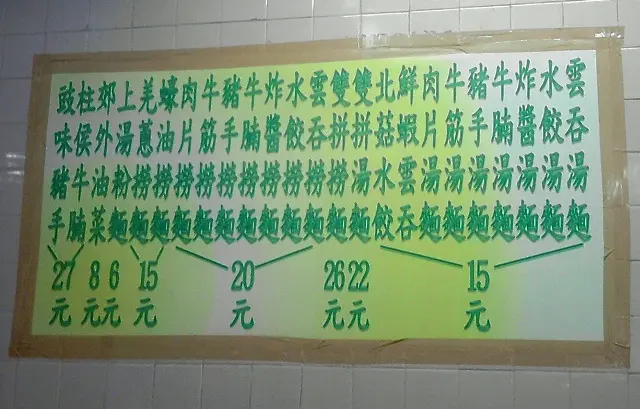 雲吞湯麵
水餃湯麵
炸醬湯麵
牛腩湯麵
豬手湯麵
牛筋湯麵
肉片湯麵
鮮蝦雲吞
北菇水餃
15元
雙拼湯麵
22元
雙拼撈麵
26元
雲吞撈麵
水餃撈麵
炸醬撈麵
牛腩撈麵
豬手撈麵
牛筋撈麵
肉片撈麵
20元
蠔油撈麵
羌蔥撈麵
15元
上湯粉麵
6元
郊外油菜
8元
柱侯牛腩
豉味豬手
27元